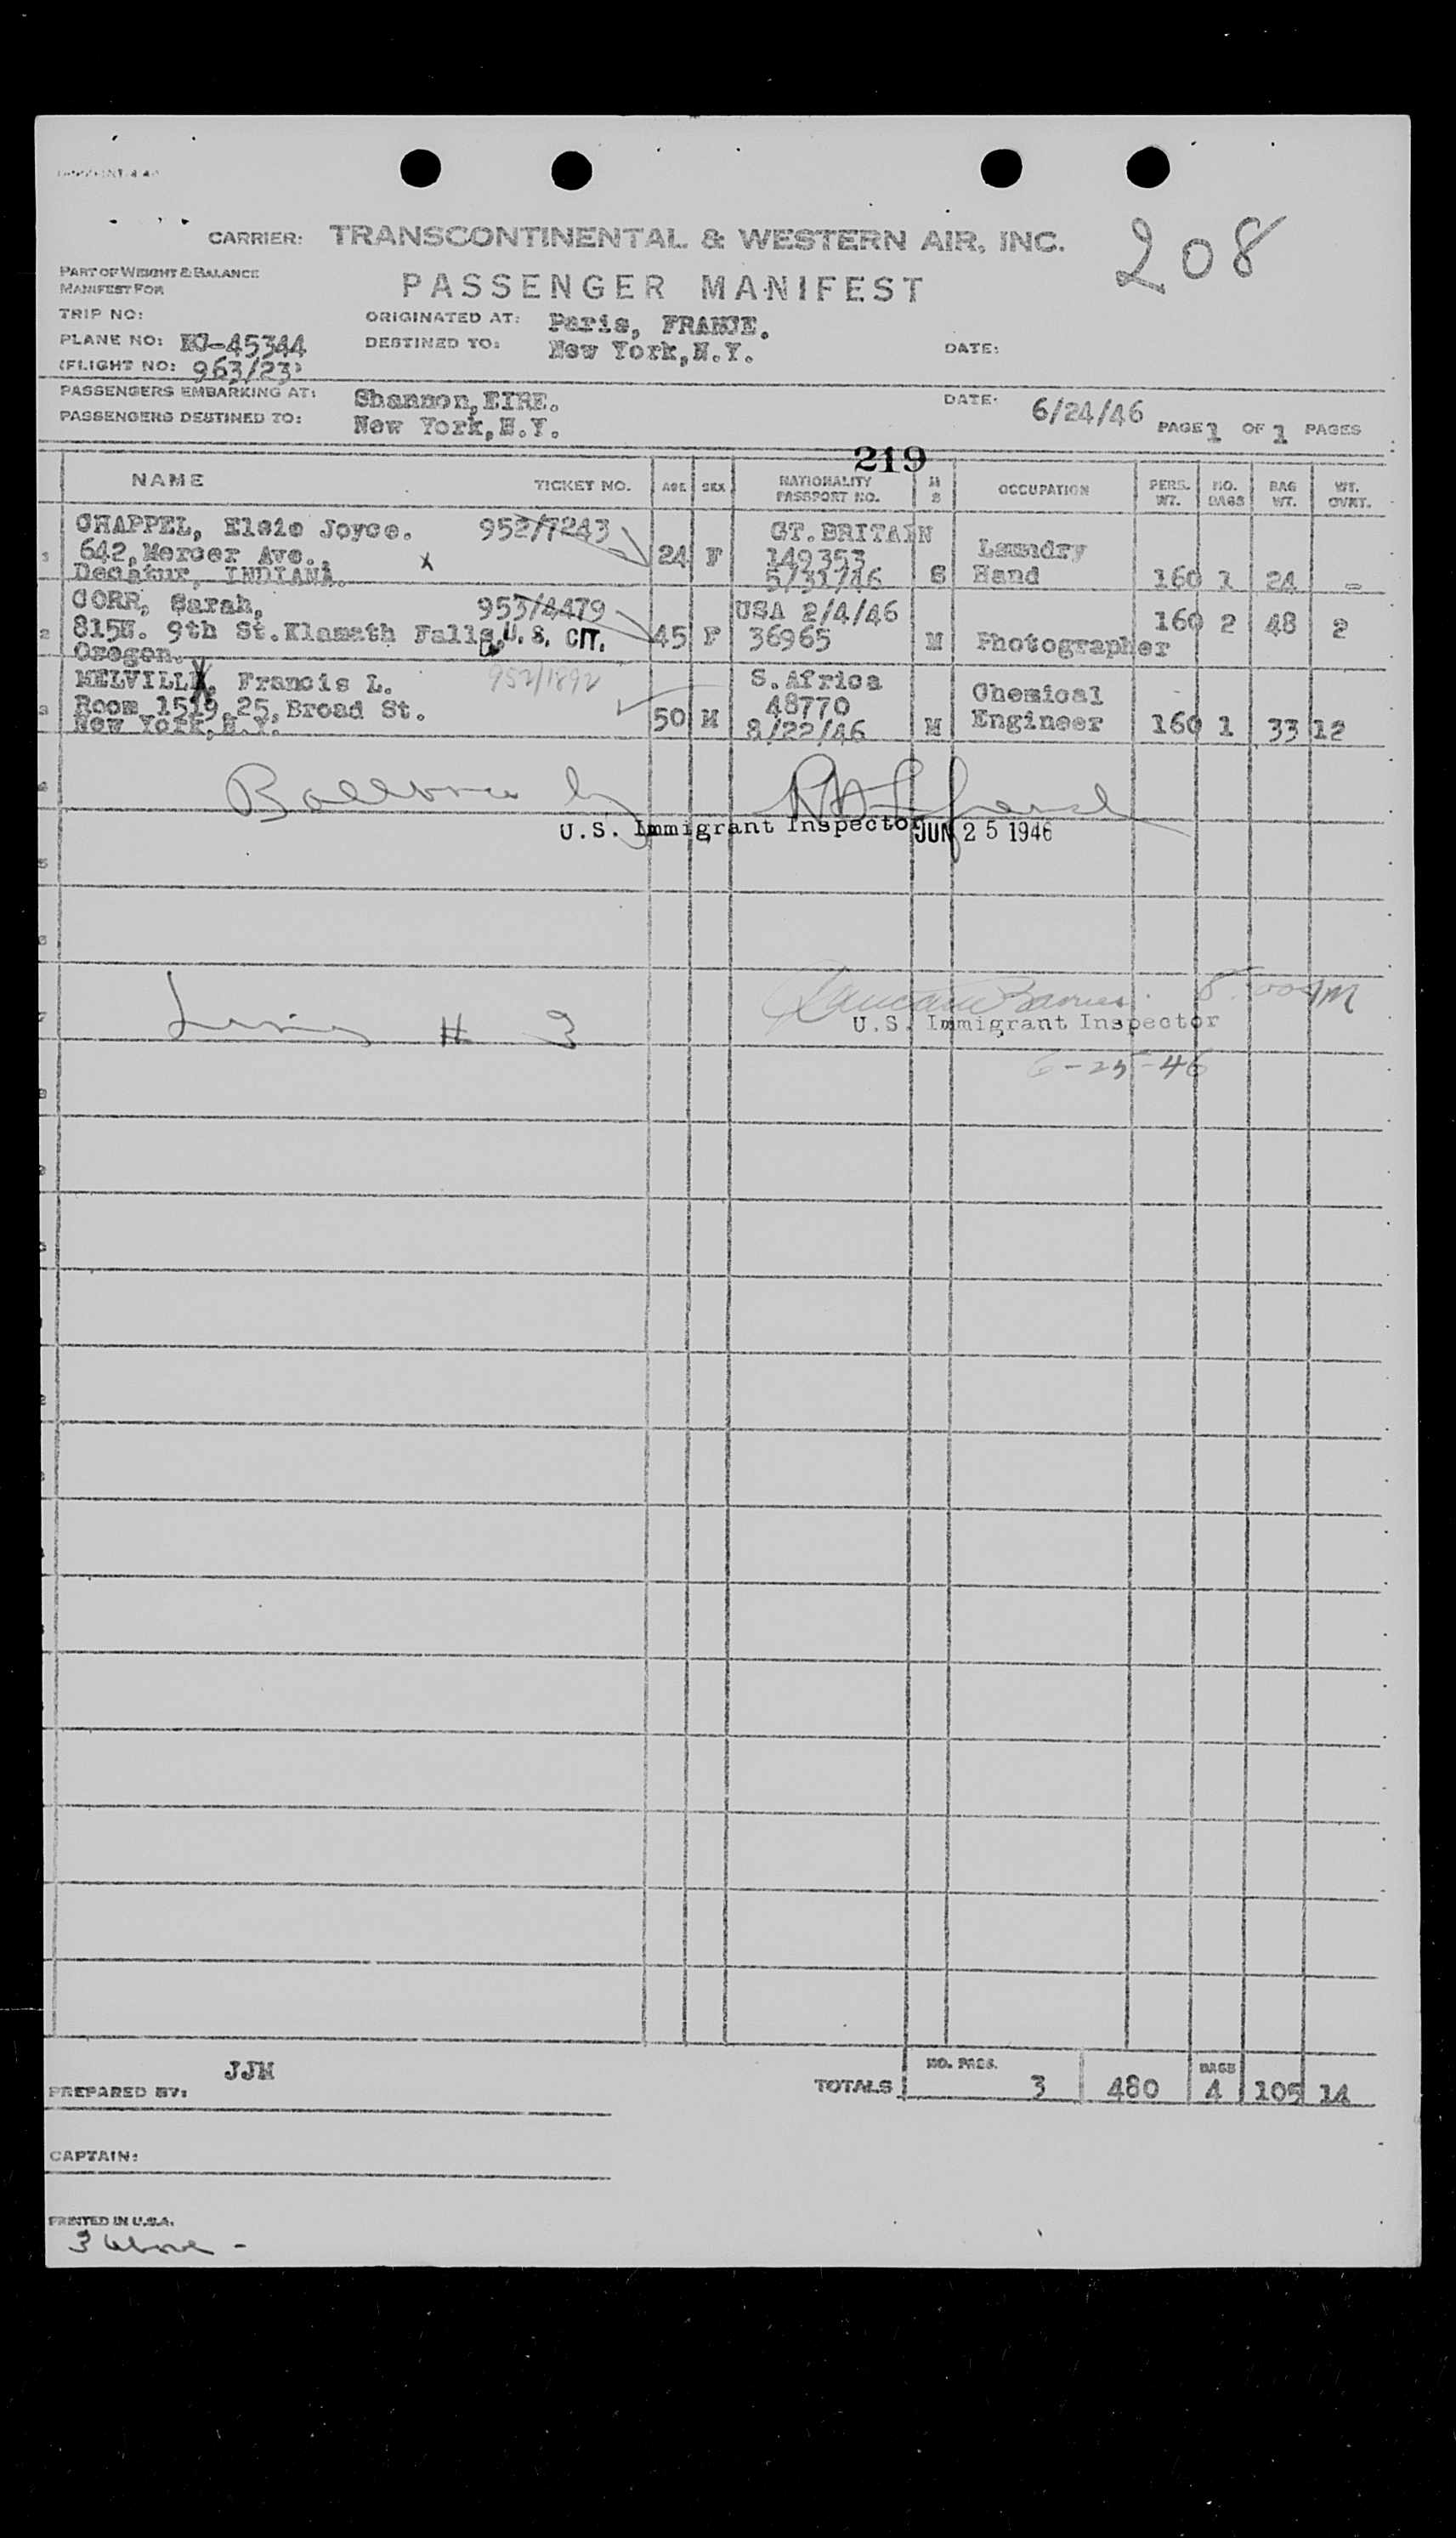 208
CARRIER: TRANSCONTINENTAL & WESTERN AIR, INC.
PART OF WEIGHT & BALANCE
MANIFEST FOR
PASSENGER MANIFEST
TRIP NO:
ORIGINATED AT: Paris, FRANCE.
PLANE NO: NC-45344
DESTINED TO: New York, N.Y.
DATE:
(FLIGHT NO: 963/23)
PASSENGERS EMBARKING AT: Shannon, EIRE.
DATE: 6/24/46
PASSENGERS DESTINED TO: New York, N.Y.
PAGE 1 OF 1 PAGES
219
NAME TICKET NO. AGE SEX NATIONALITY PASSPORT NO. M S OCCUPATION PERS. WT. NO. BAGS BAG WT. WT. OVRT.
CHAPPEL, Elsie Joyce. 952/7243 GT. BRITAIN
642, Mercer Ave., X 24 F 149353 Laundry
Decatur, INDIANA. 5/31/46 S Hand 160 1 24 -
CORR, Sarah, 953/4479 USA 2/4/46 160 2 48 2
815N. 9th St. Klamath Falls, U.S. CIT. 45 F 36965 M Photographer
Oregon.
MELVILL, Francis L. 952/1892 S. Africa Chemical
Room 1519, 25, Broad St. 50 M 48770 Engineer 160 1 33 12
New York, N.Y. 8/22/46 M
by
U.S. Immigrant Inspector JUN 25 1946
# 3
8:00 AM
U.S. Immigrant Inspector
6-25-46
JJM
PREPARED BY:
NO. PASS. BAGS
TOTALS 3 480 4 105 14
CAPTAIN:
PRINTED IN U.S.A.
3 above -